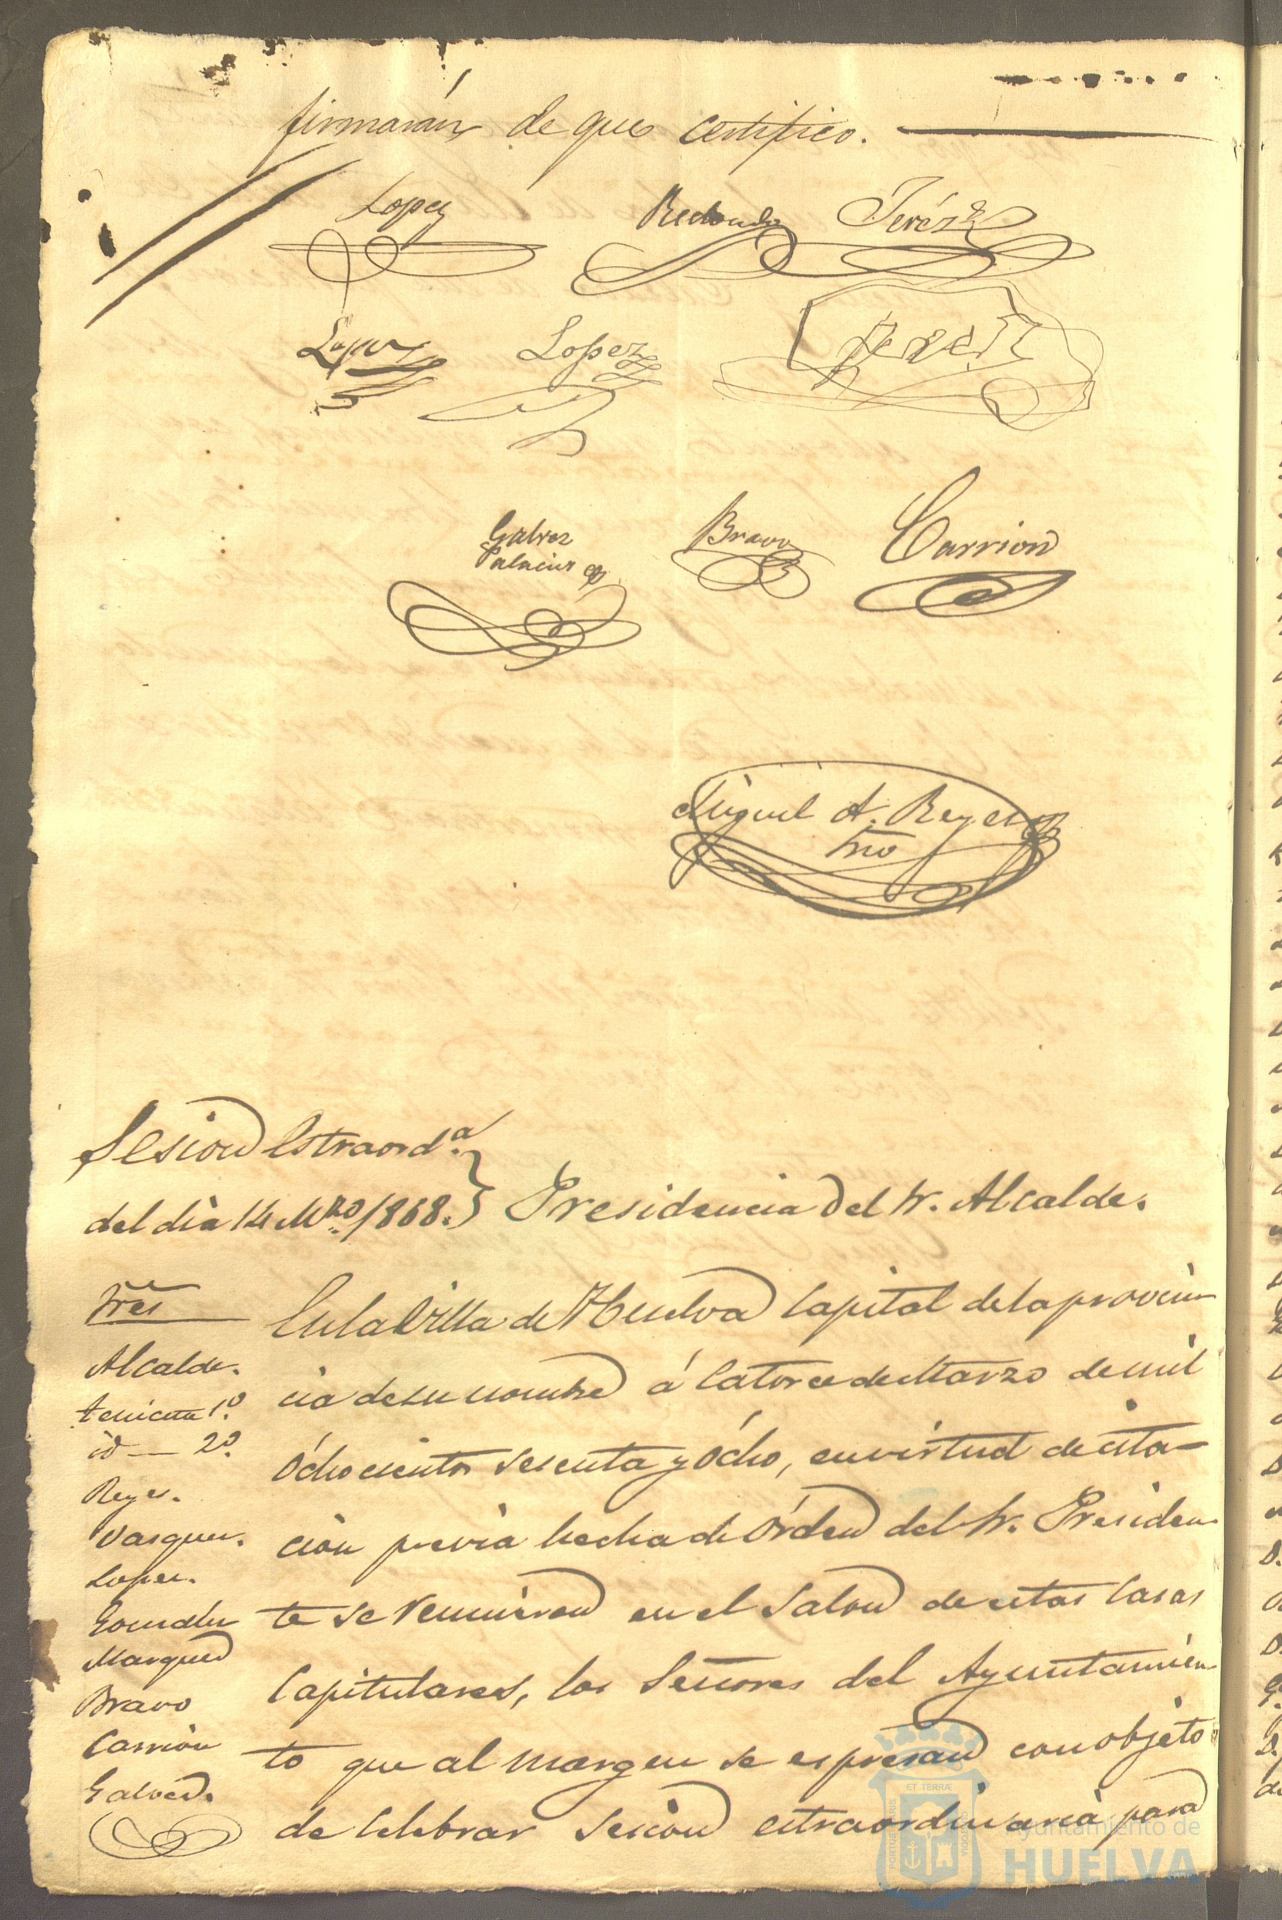 firmarán de que certifico.
Lopez Redondo Jeréz
Lopez Lopez Perez
Galvez Bravo Carrion
Palacios
Miguel A. Reyes
Srio
Sesion estraord.ª
del dia 14 Mzo/1868. } Presidencia del Sr. Alcalde.
Sres
Alcalde.
teniente 1.º
id — 2.º
Reyes.
Vasquez.
Lopez.
Gonzalez
Marquez
Bravo
Carrion
Galvez.
En la Villa de Huelva Capital de la provin
cia de su nombre á Catorce de Marzo de mil
Ochocientos sesenta y Ocho, en virtud de cita-
cion previa hecha de Orden del Sr. Presiden-
te se reunieron en el Salon de estas Casas
Capitulares, los Señores del Ayuntamien-
to que al margen se espresan con objeto
de Celebrar Sesion estraordinaria para
ET TERRÆ
Ayuntamiento de
HUELVA